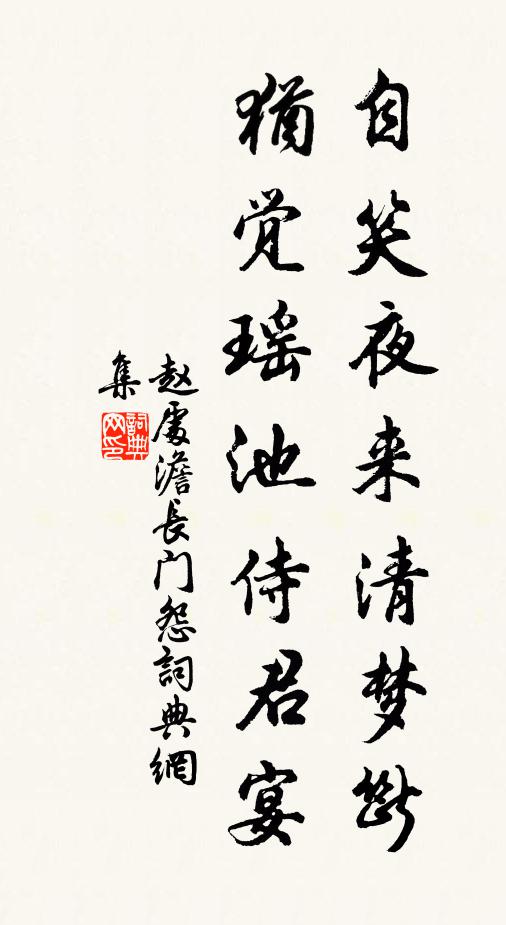 自笑夜来清梦断
犹觉瑶池侍君宴
赵處澹長门怨詞典網
集
詞典
网印